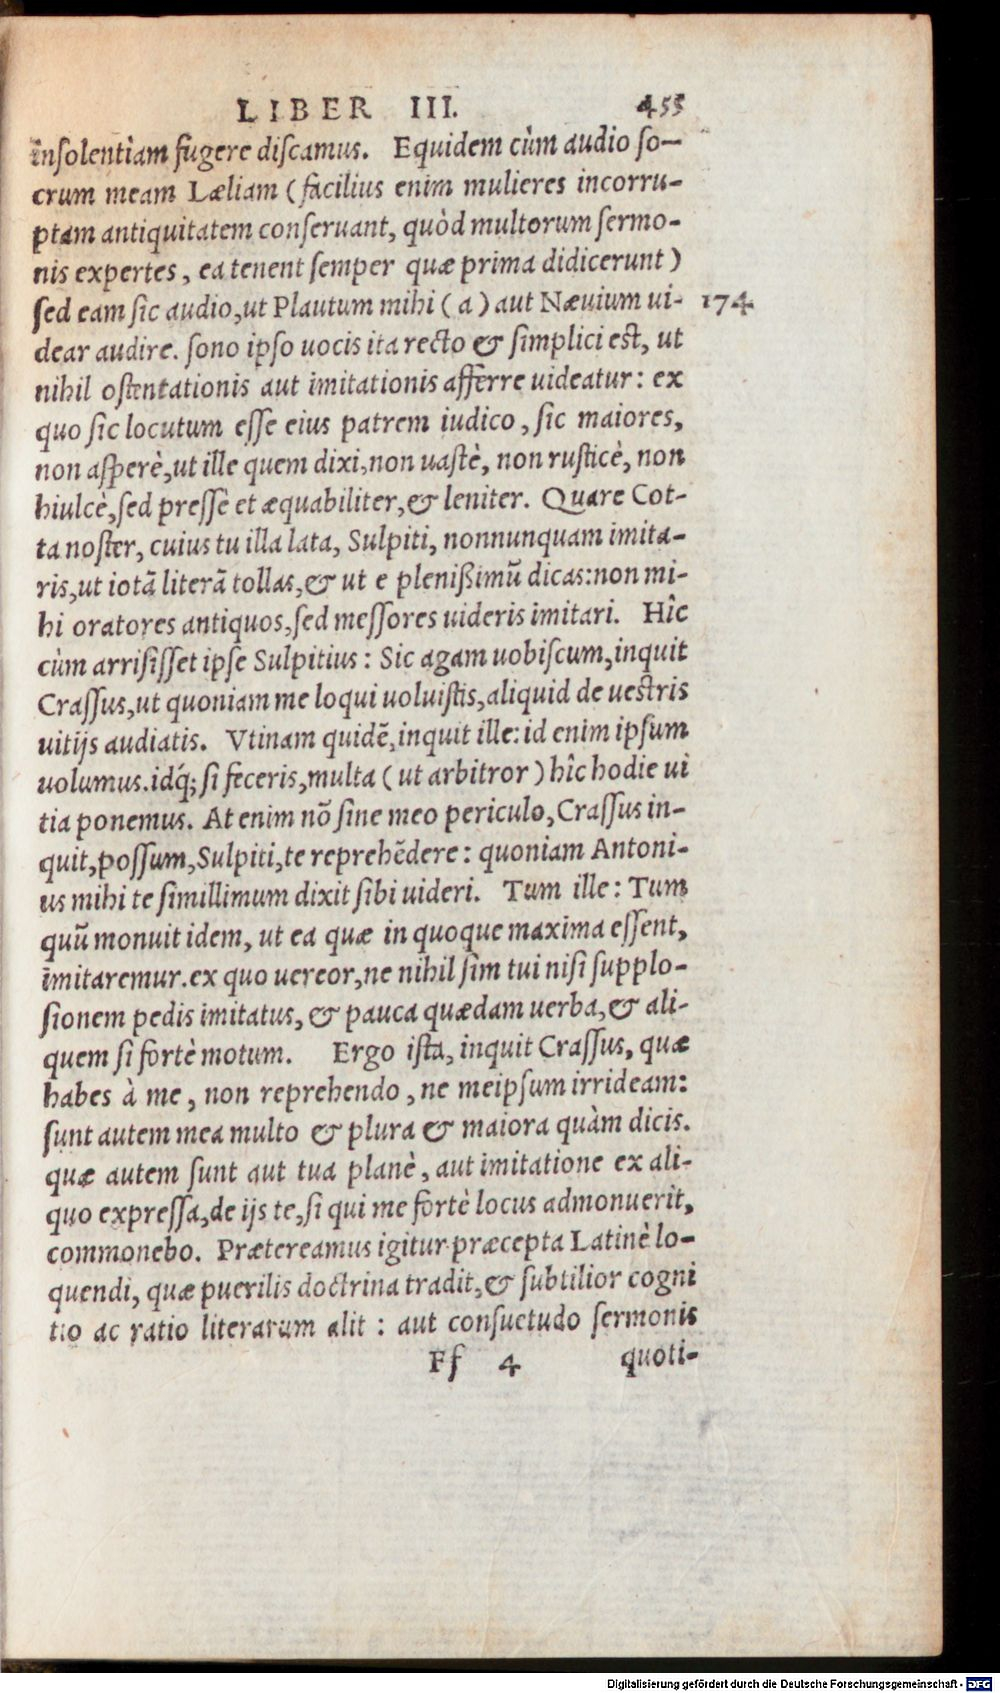 LIBER III. 455
insolentiam fugere discamus. Equidem cùm audio so-
crum meam Læliam (facilius enim mulieres incorru-
ptam antiquitatem conseruant, quòd multorum sermo-
nis expertes, ea tenent semper quæ prima didicerunt)
sed eam sic audio, ut Plautum mihi (a) aut Næuium ui- 174
dear audire. sono ipso uocis ita recto & simplici est, ut
nihil ostentationis aut imitationis afferre uideatur: ex
quo sic locutum esse eius patrem iudico, sic maiores,
non asperè, ut ille quem dixi, non uastè, non rusticè, non
hiulcè, sed pressè et æquabiliter, & leniter. Quare Cot-
ta noster, cuius tu illa lata, Sulpiti, nonnunquam imita-
ris, ut iotā literā tollas, & ut e plenißimū dicas: non mi-
hi oratores antiquos, sed messores uideris imitari. Hîc
cùm arrisisset ipse Sulpitius: Sic agam uobiscum, inquit
Crassus, ut quoniam me loqui uoluistis, aliquid de uestris
uitijs audiatis. Vtinam quidē, inquit ille: id enim ipsum
uolumus. idq́; si feceris, multa (ut arbitror) hîc hodie ui
tia ponemus. At enim nō sine meo periculo, Crassus in-
quit, possum, Sulpiti, te reprehēdere: quoniam Antoni-
us mihi te simillimum dixit sibi uideri. Tum ille: Tum
quū monuit idem, ut ea quæ in quoque maxima essent,
imitaremur. ex quo uereor, ne nihil sim tui nisi supplo-
sionem pedis imitatus, & pauca quædam uerba, & ali-
quem si fortè motum. Ergo ista, inquit Crassus, quæ
habes à me, non reprehendo, ne meipsum irrideam:
sunt autem mea multo & plura & maiora quàm dicis.
quæ autem sunt aut tua planè, aut imitatione ex ali-
quo expressa, de ijs te, si qui me fortè locus admonuerit,
commonebo. Prætereamus igitur præcepta Latinè lo-
quendi, quæ puerilis doctrina tradit, & subtilior cogni
tio ac ratio literarum alit: aut consuetudo sermonis
Ff 4 quoti-
Digitalisierung gefördert durch die Deutsche Forschungsgemeinschaft - DFG